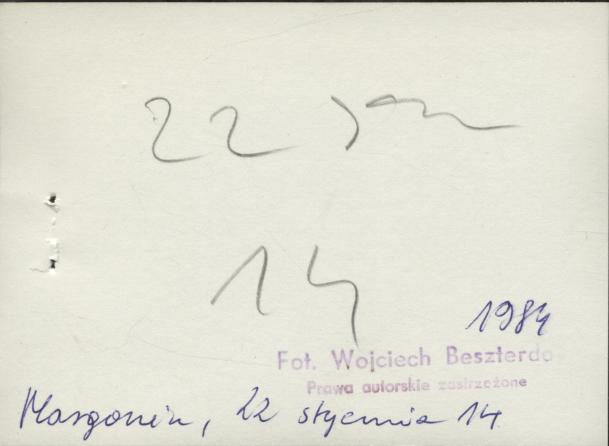 22
14
1984
Fot. Wojciech Beszterda
Prawa autorskie zastrzeżone
Margonin, 22 stycznia 14